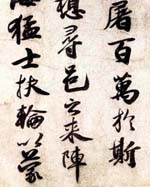 屠百萬於斯
想尋邑之来陣
海猛士扶輪以蒙